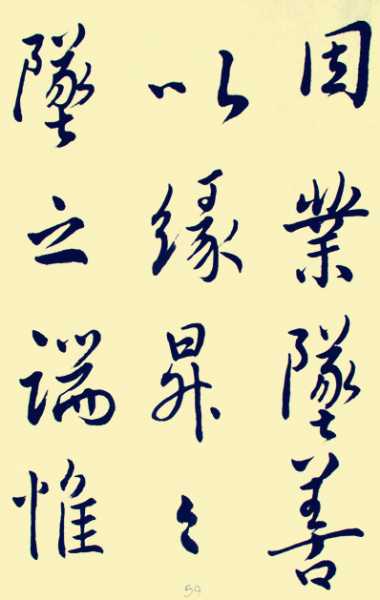 因業墜善
以緣昇々
墜之端惟